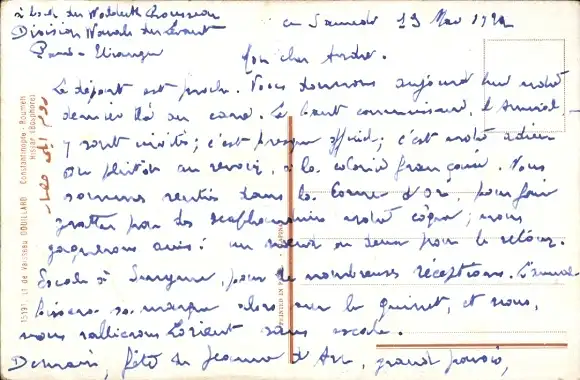 à bord du Waldeck Rousseau
Division Navale du Levant
ce Samedi 13 Mai 1922
Mon cher André.
Le départ est proche. Nous donnons aujourd'hui notre
dernier thé au carré. Le haut commissaire, l'Amiral
y sont invités ; c'est presque officiel ; c'est notre adieu
ou plutôt au revoir, à la colonie française. Nous
sommes rentrés dans la Corne d'Or, pour faire
gratter par des scaphandriers notre coque ; nous
gagnerons ainsi : un nœud ou deux pour le retour.
Escale à Smyrne, pour de nombreuses réceptions. L'amiral
sa marque alors sur le et nous,
nous rallierons Lorient sans escale.
Demain, fête de Jeanne d'Arc, grand pavois,
1513. Lt de Vaisseau DOUILLARD Constantinople - Roumeli
Hissar (Bosphore)
روم ايلى حصار